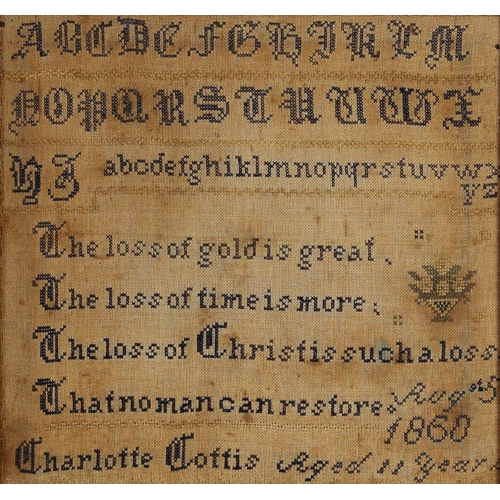 ABCDEFGHIKLM
NOPQRSTUVWX
YZ abcdefghiklmnopqrstuvwx
yz
The loss of gold is great,
The loss of time is more;
The loss of Christ is such a loss
That no man can restore.
1860
Charlotte Cottis Aged 11 Years